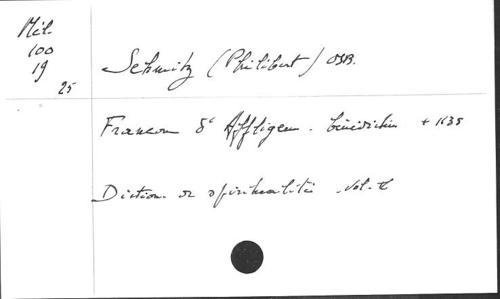 Mil.
100
19
25
Schmitz (Philibert) OSB.
Francon d' Affligem. bénédictin + 1135
Diction. de spiritualité. Vol.